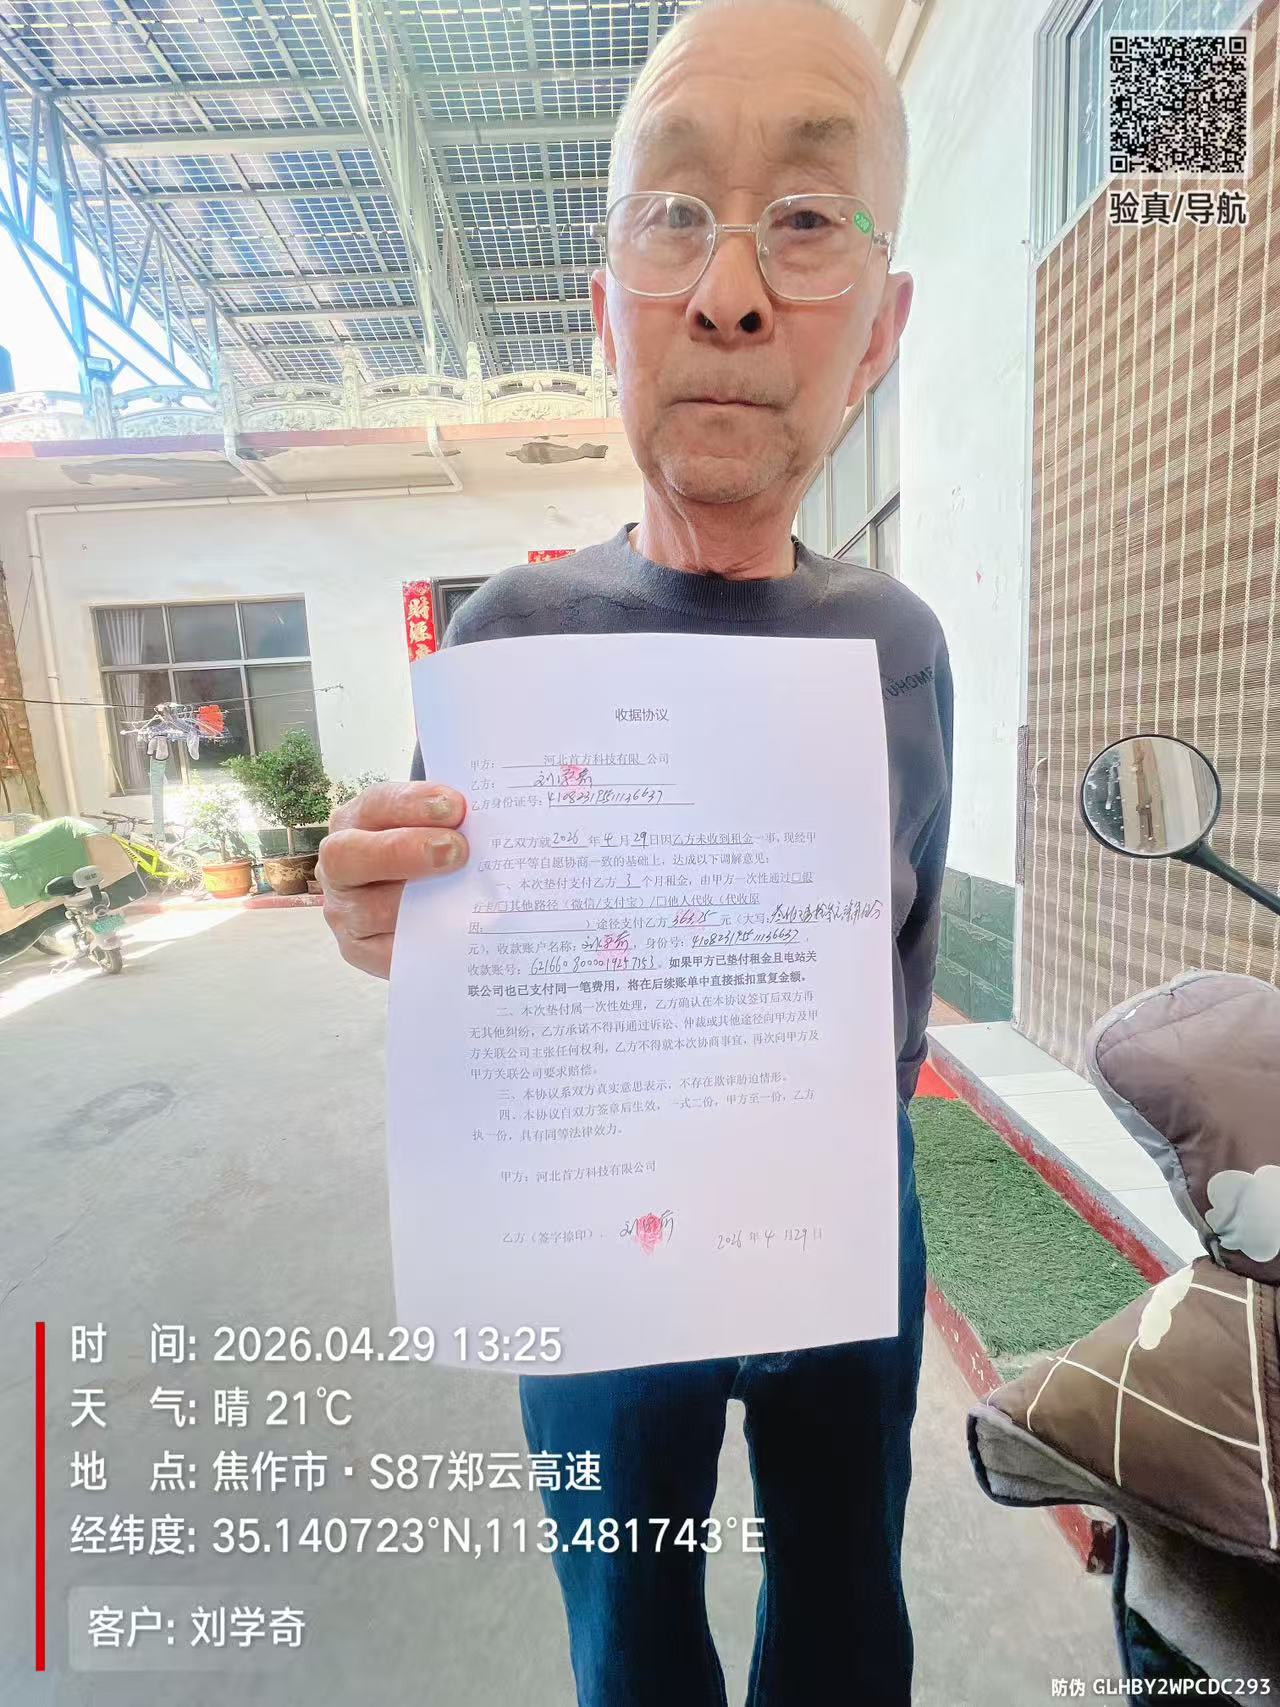 验真/导航
財源
UHOME
收据协议
甲方： 河北首方科技有限 公司
乙方： 刘学奇
乙方身份证号：410823195511136637
甲乙双方就2026 年 4 月 29日因乙方未收到租金一事，现经甲
乙双方在平等自愿协商一致的基础上，达成以下调解意见：
一、本次垫付支付乙方 3 个月租金，由甲方一次性通过□银
行卡/□其他路径（微信/支付宝）/□他人代收（代收原
因： ）途径支付乙方 363.25 元（大写：叁佰
元），收款账户名称：刘学奇，身份号：410823195511136637，
收款账号：6216608000019257153。如果甲方已垫付租金且电站关
联公司也已支付同一笔费用，将在后续账单中直接抵扣重复金额。
二、本次垫付属一次性处理，乙方确认在本协议签订后双方再
无其他纠纷，乙方承诺不得再通过诉讼、仲裁或其他途径向甲方及甲
方关联公司主张任何权利，乙方不得就本次协商事宜，再次向甲方及
甲方关联公司要求赔偿。
三、本协议系双方真实意思表示，不存在欺诈胁迫情形。
四、本协议自双方签章后生效，一式二份，甲方至一份，乙方
执一份，具有同等法律效力。
甲方：河北首方科技有限公司
乙方（签字捺印）： 刘学奇 2026 年 4 月29 日
时 间: 2026.04.29 13:25
天 气: 晴 21℃
地 点: 焦作市·S87郑云高速
经纬度: 35.140723°N,113.481743°E
客户: 刘学奇
防伪 GLHBY2WPCDC293